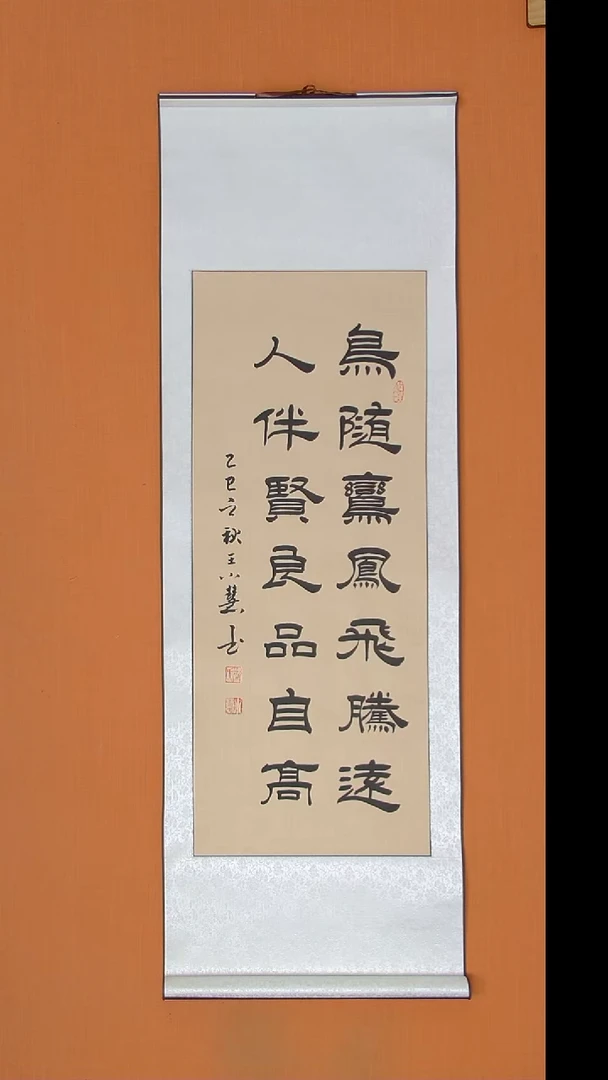 鳥隨鸞鳳飛騰遠
人伴賢良品自高
乙巳立秋王小慧書